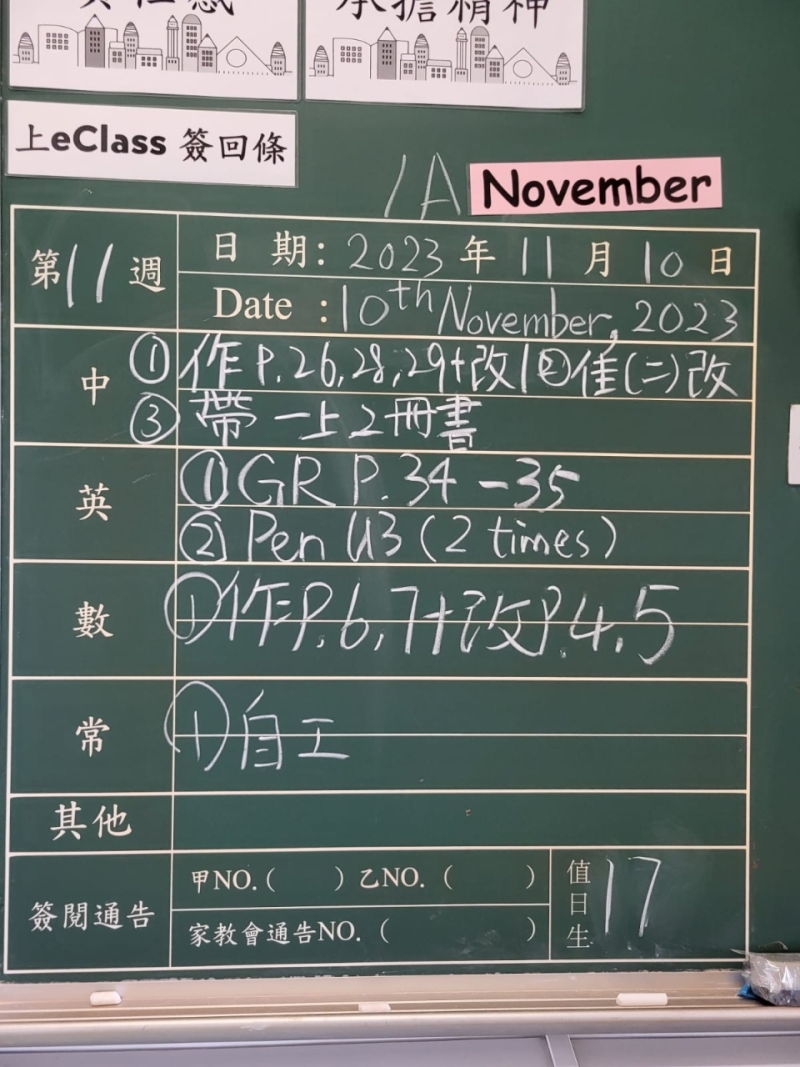 責任感
承擔精神
上eClass 簽回條
1A November
第11週
日 期: 2023年11月10日
Date : 10th November, 2023
中
① 作P.26,28,29+改1 ②佳(二)改
③ 帶一上2冊書
英
① GR P.34-35
② Pen U3 (2 times)
數
① 作P.6,7+改P.4,5
常
① 自工
其他
簽閱通告
甲NO.( ) 乙NO.( )
家教會通告NO.( )
值日生 17